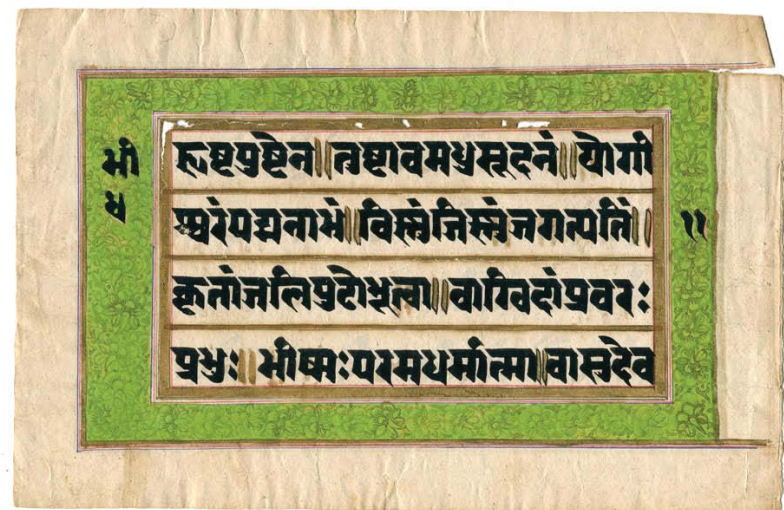 भी
ह्रष्टपुष्टेन॥तुष्टावमधुसूदनं॥योगी
श्वरंपद्मनाभं॥विस्नुंजिस्नुंजगत्पतिं॥
११
कृतांजलिपुटोभुत्वा॥वाग्विदांप्रवरः
प्रभुः॥भीष्मःपरमधर्मात्मा॥वासुदेव